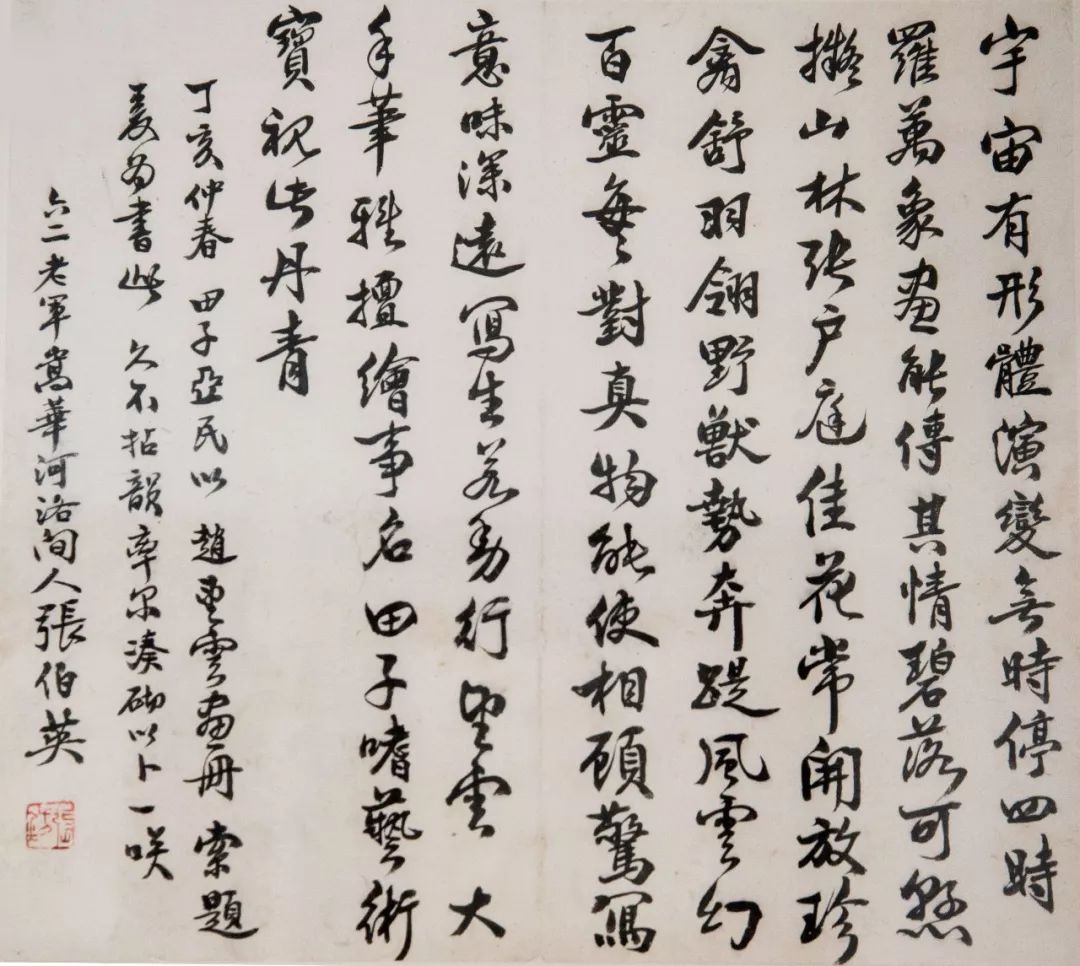 宇宙有形體演變無時停四時
羅萬象畫能傳其情碧落可懸
擬山林張戶庭佳花常開放珍
禽舒羽翎野獸勢奔踶風雲幻
百靈每對真物能使相顧驚寫
意味深遠寫生若動行望雲大
手筆雅擅繪事名田子嗜藝術
寶視此丹青
丁亥仲春田子亞民以趙望雲畫冊索題
爰為書此久不拈韻率爾湊砌以卜一咲
六二老軍嵩華河洛間人張伯英